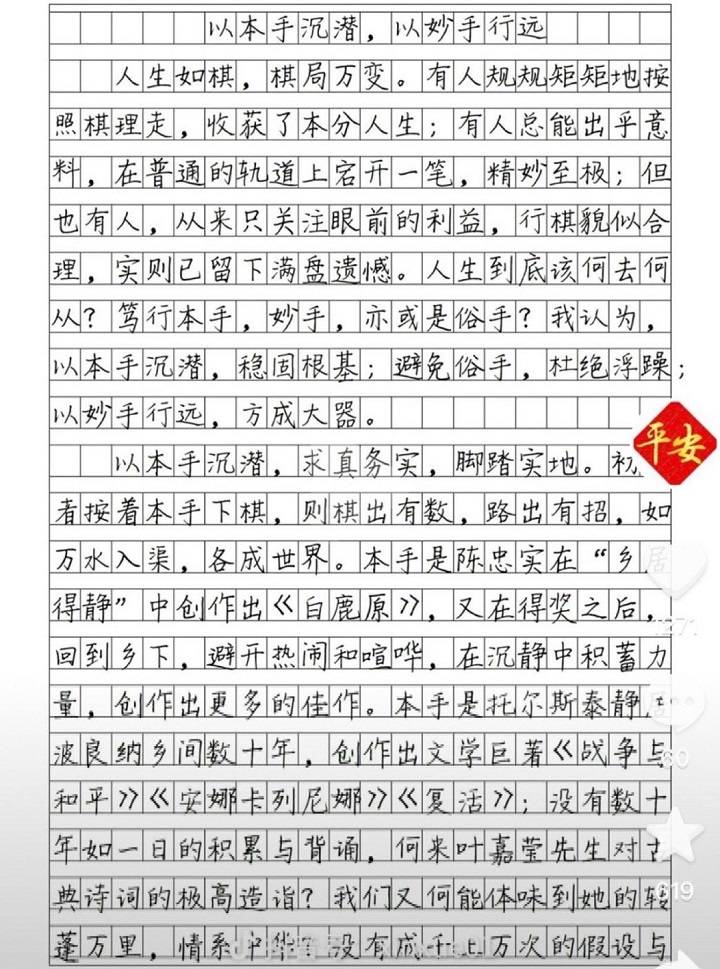 以本手沉潜，以妙手行远
人生如棋，棋局万变。有人规规矩矩地按
照棋理走，收获了本分人生；有人总能出乎意
料，在普通的轨道上宕开一笔，精妙至极；但
也有人，从来只关注眼前的利益，行棋貌似合
理，实则已留下满盘遗憾。人生到底该何去何
从？笃行本手，妙手，亦或是俗手？我认为，
以本手沉潜，稳固根基；避免俗手，杜绝浮躁；
以妙手行远，方成大器。
平安
以本手沉潜，求真务实，脚踏实地。初
者按着本手下棋，则棋出有数，路出有招，如
万水入渠，各成世界。本手是陈忠实在“乡居
得静”中创作出《白鹿原》，又在得奖之后，
1271
回到乡下，避开热闹和喧哗，在沉静中积蓄力
量，创作出更多的佳作。本手是托尔斯泰静居
波良纳乡间数十年，创作出文学巨著《战争与
60
和平》《安娜卡列尼娜》《复活》；没有数十
年如一日的积累与背诵，何来叶嘉莹先生对古
典诗词的极高造诣？我们又何能体味到她的转
619
蓬万里，情系中华？没有成千上万次的假设与